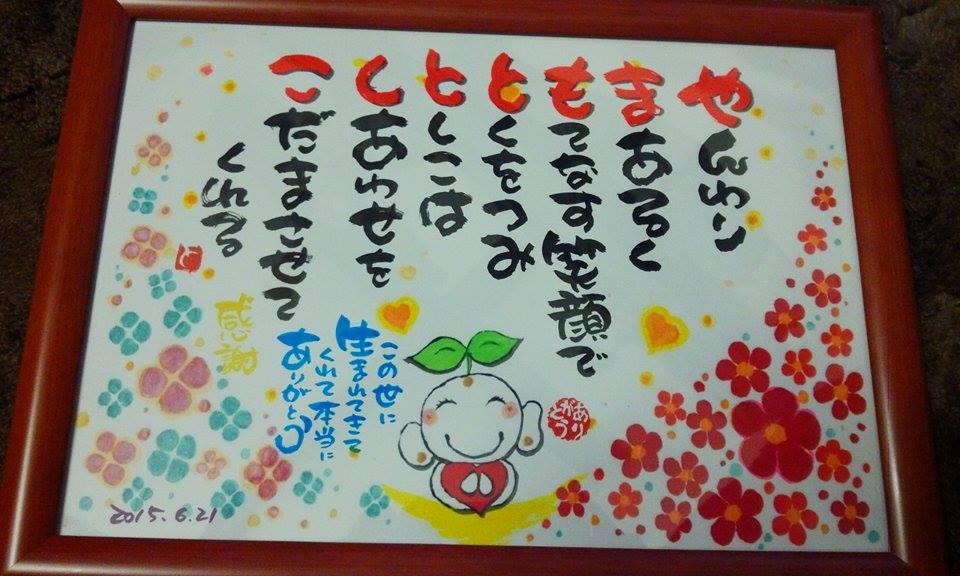 やんわり
まあるく
もてなす笑顔で
とくをつみ
としこは
しあわせを
こだまさせて
くれる
感謝
この世に
生まれてきて
くれて本当に
ありがとう
ありがとう
と
2015.6.21